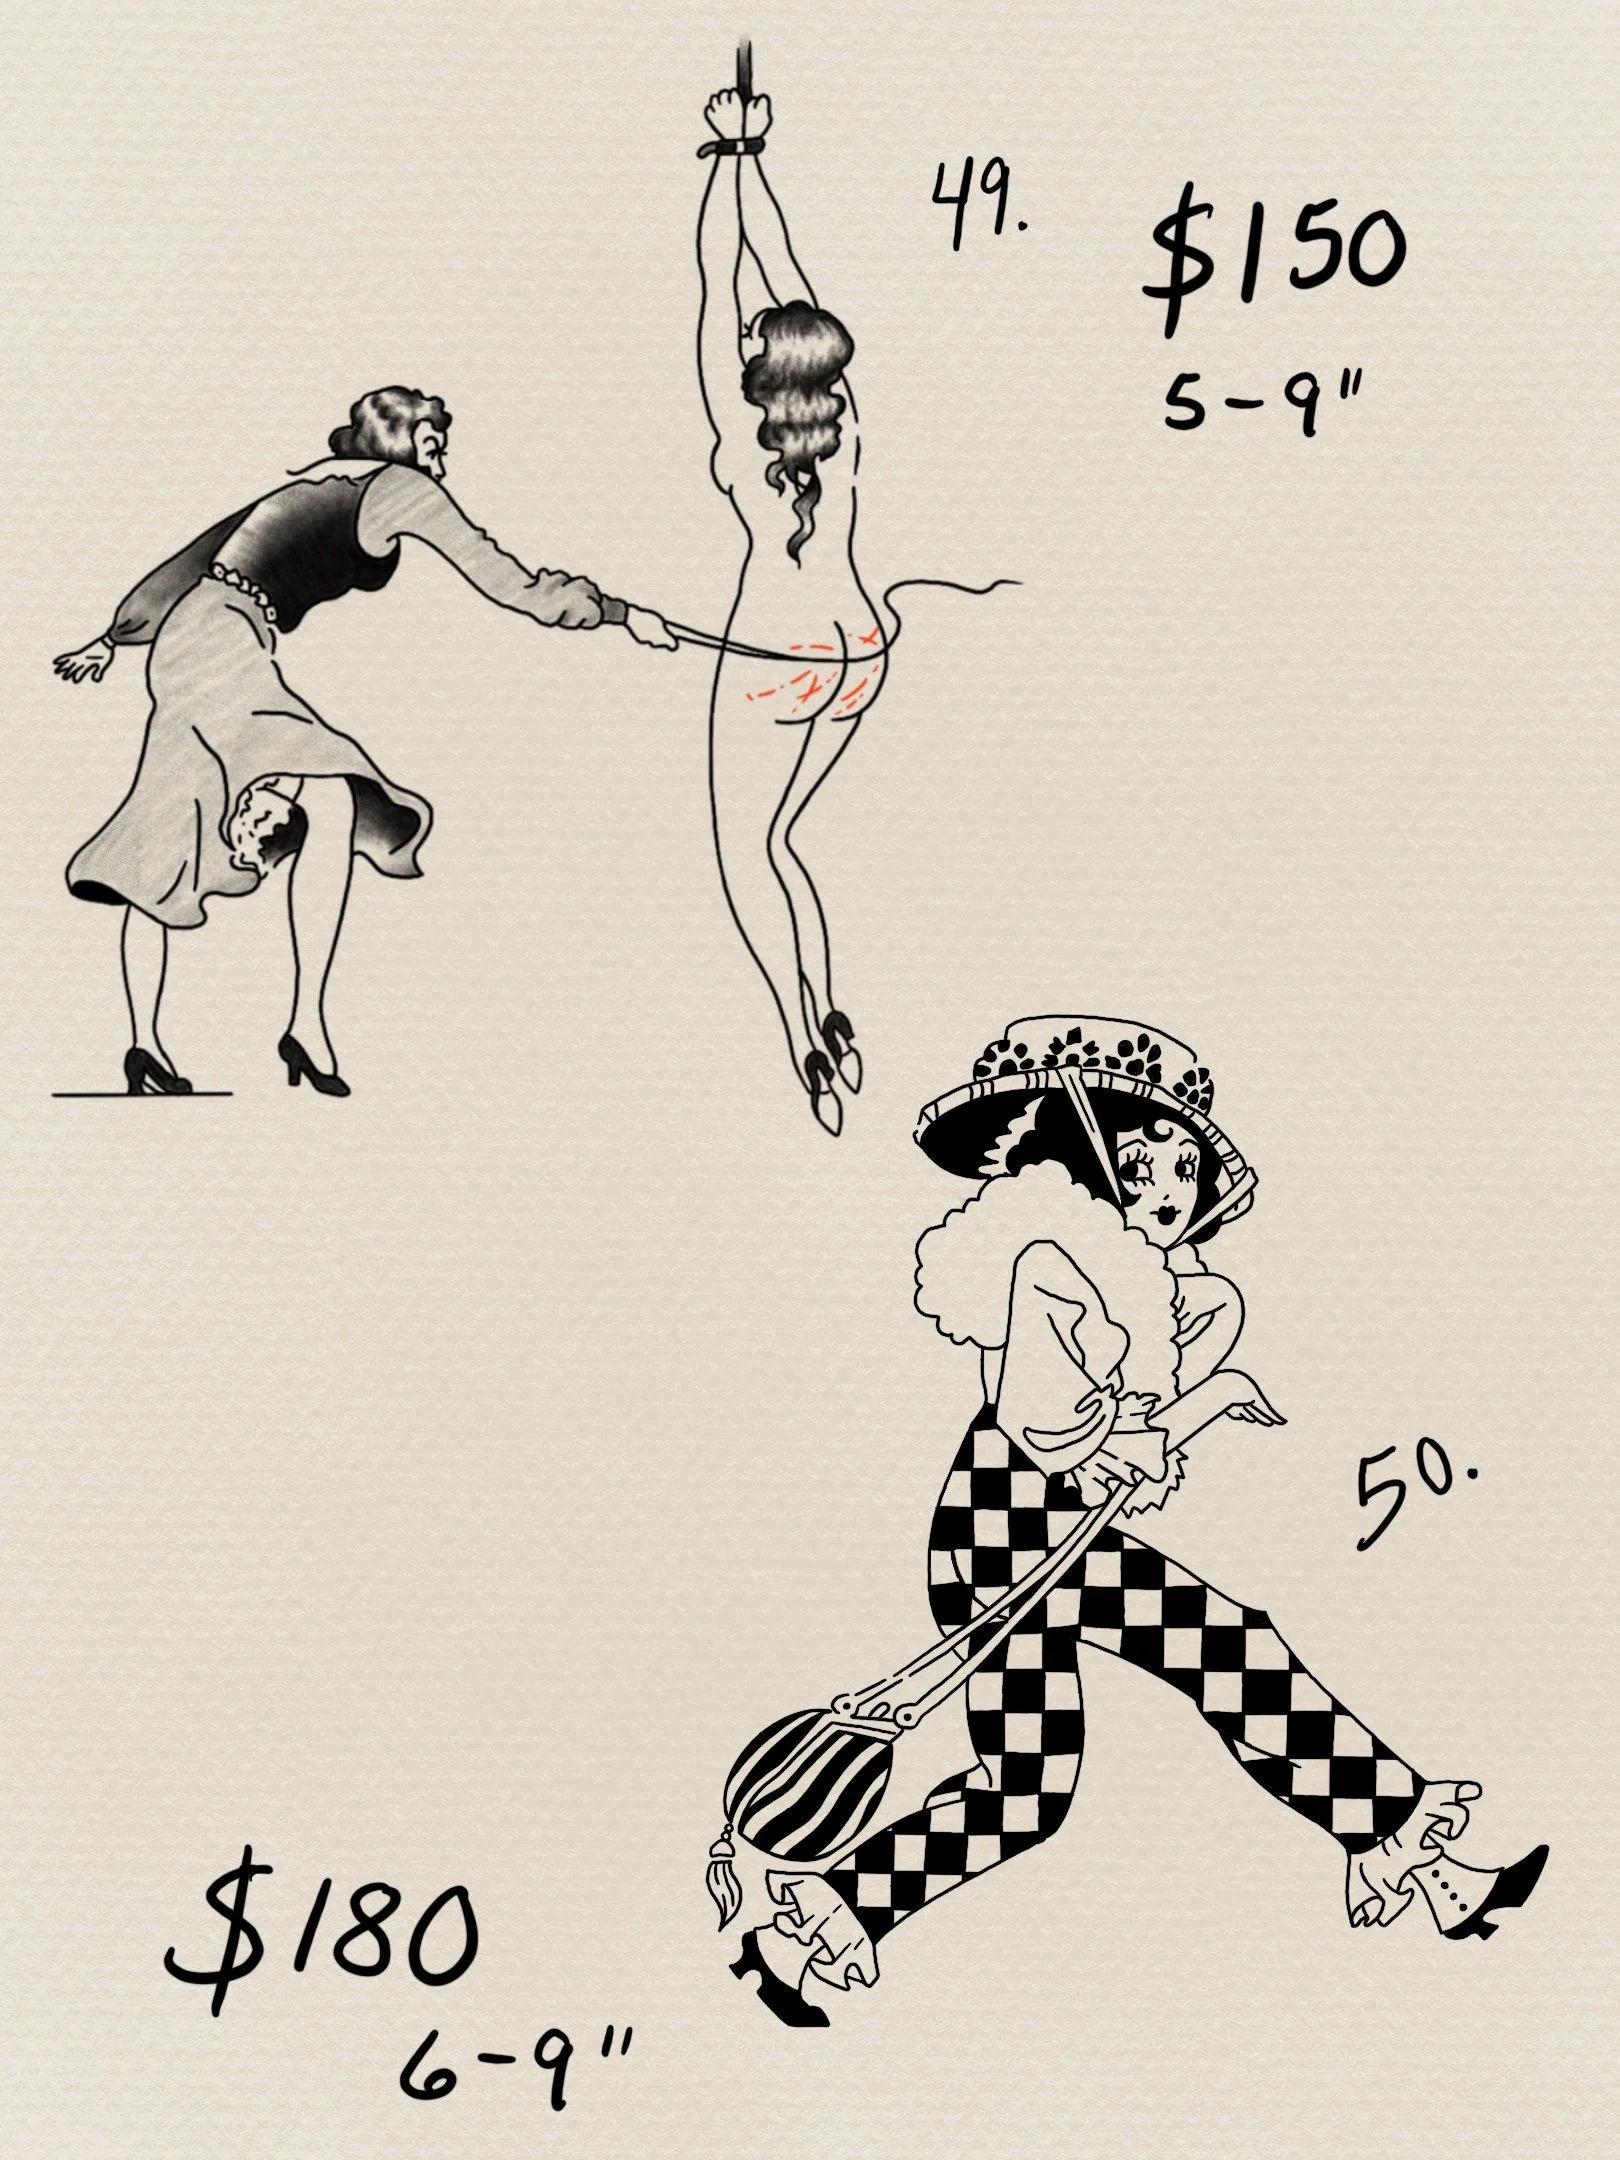 49.
$150
5-9"
50.
$180
6-9"